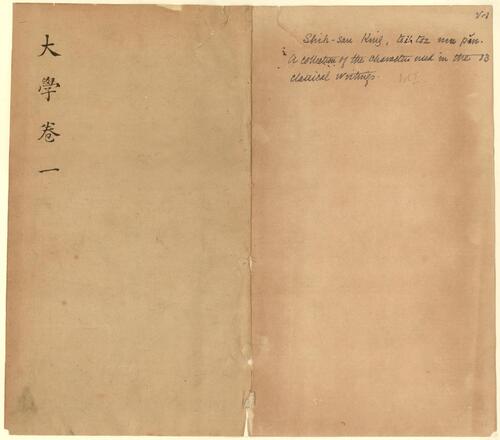 大學卷一
Shih-san King, tsi toz mu pǎn.
A collection of the characters used in the 13
classical writings.